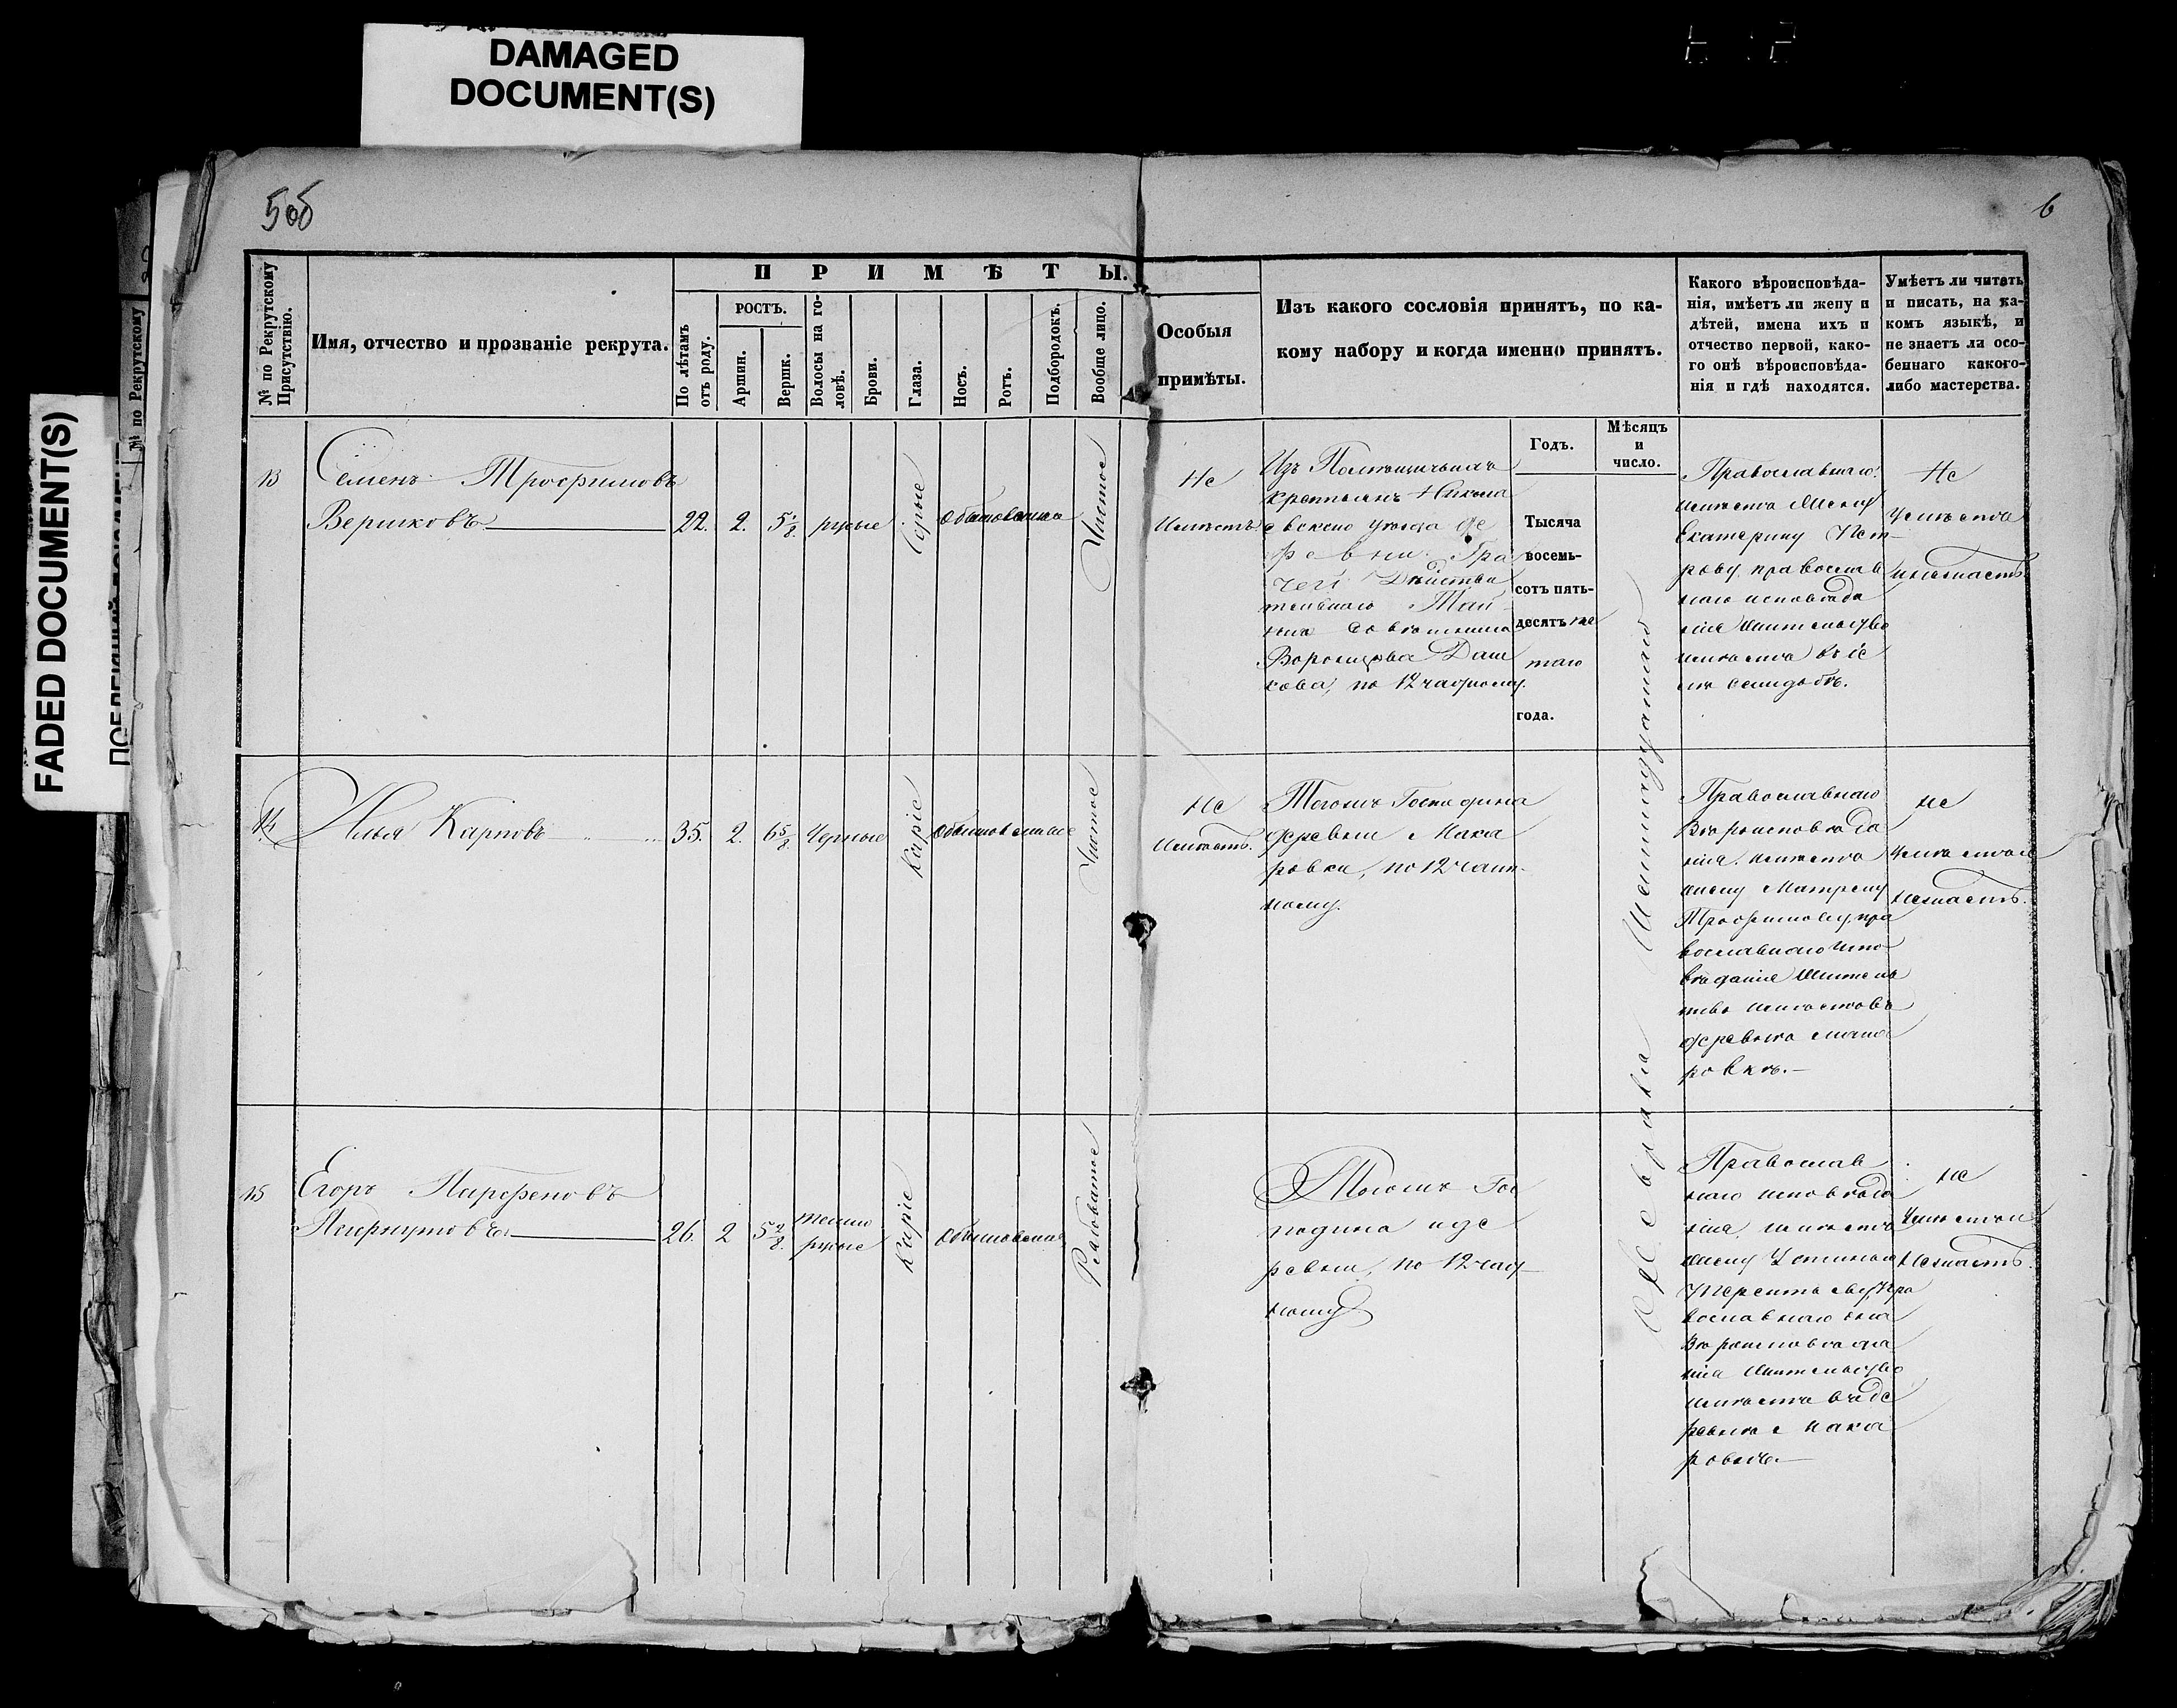 DAMAGED
DOCUMENT(S)
FADED DOCUMENT(S)
№ по Рекрутскому
5об
6
№ по Рекрутскому
Присутствію.
Имя, отчество и прозваніе рекрута.
ПРИМѢТЫ.
По лѣтамъ
отъ роду.
РОСТЪ.
Аршин.
Вершк.
Волосы на го-
ловѣ.
Брови.
Глаза.
Носъ.
Ротъ.
Подбородокъ.
Вообще лицо.
Особыя
примѣты.
Изъ какого сословія принятъ, по ка-
кому набору и когда именно принятъ.
Какого вѣроисповѣда-
нія, имѣетъ ли жену и
дѣтей, имена ихъ и
отчество первой, како-
го онѣ вѣроисповѣда-
нія и гдѣ находятся.
Умѣетъ ли читать
и писать, на ка-
комъ языкѣ, и
не знаетъ ли осо-
беннаго какого-
либо мастерства.
Годъ.
Мѣсяцъ
и
число.
13
Семенъ Трофимовъ
Вершковъ
22. 2. 5 1/8. русые
Сѣрые
Обыкновенные
Чистое
Не
Имѣетъ
Изъ Помѣщичьихъ
крестьянъ Никола
евскаго уѣзда де
ревни Гра
чей Дѣйстви
тельнаго Тай
наго Совѣтника
Воронцова Даш
кова, по 12 частному.
Тысяча
восемь-
сотъ пять-
десятъ пя
таго
года.
Православнаго
имѣетъ жену
Екатерину Пет
рову православ
наго исповѣда
нія жительство
имѣетъ въ се
Не
умѣетъ и
незнаетъ
14
Илья Карповъ
35. 2. 6 5/8 Черные
Каріе
Обыкновенные
Чистое
Не
Имѣетъ.
Тогожъ Господина
деревни Мака
ровки, по 12 част
ному.
Православнаго
Вѣроисповѣда
нія. имѣетъ
жену Матрену
Трофимову, пра
вославнаго испо
вѣданія житель
ство имѣетъ въ
деревнѣ Мака
ровкѣ.
не
Умѣетъ и
незнаетъ.
15
Егоръ Парфеновъ
26. 2 5 2/8. темно
русые
Каріе
Обыкновенные
Рябоватое
Тогожъ Гос
подина и де
ревни, по 12 част
ному
Православ
наго исповѣда
нія, имѣетъ
жену Устинью
Терентьеву, пра
вославнаго она
Вѣроисповѣда
нія жительство
имѣетъ въ де
ревнѣ Мака
ровкѣ.
не
Умѣетъ и
Незнаетъ.